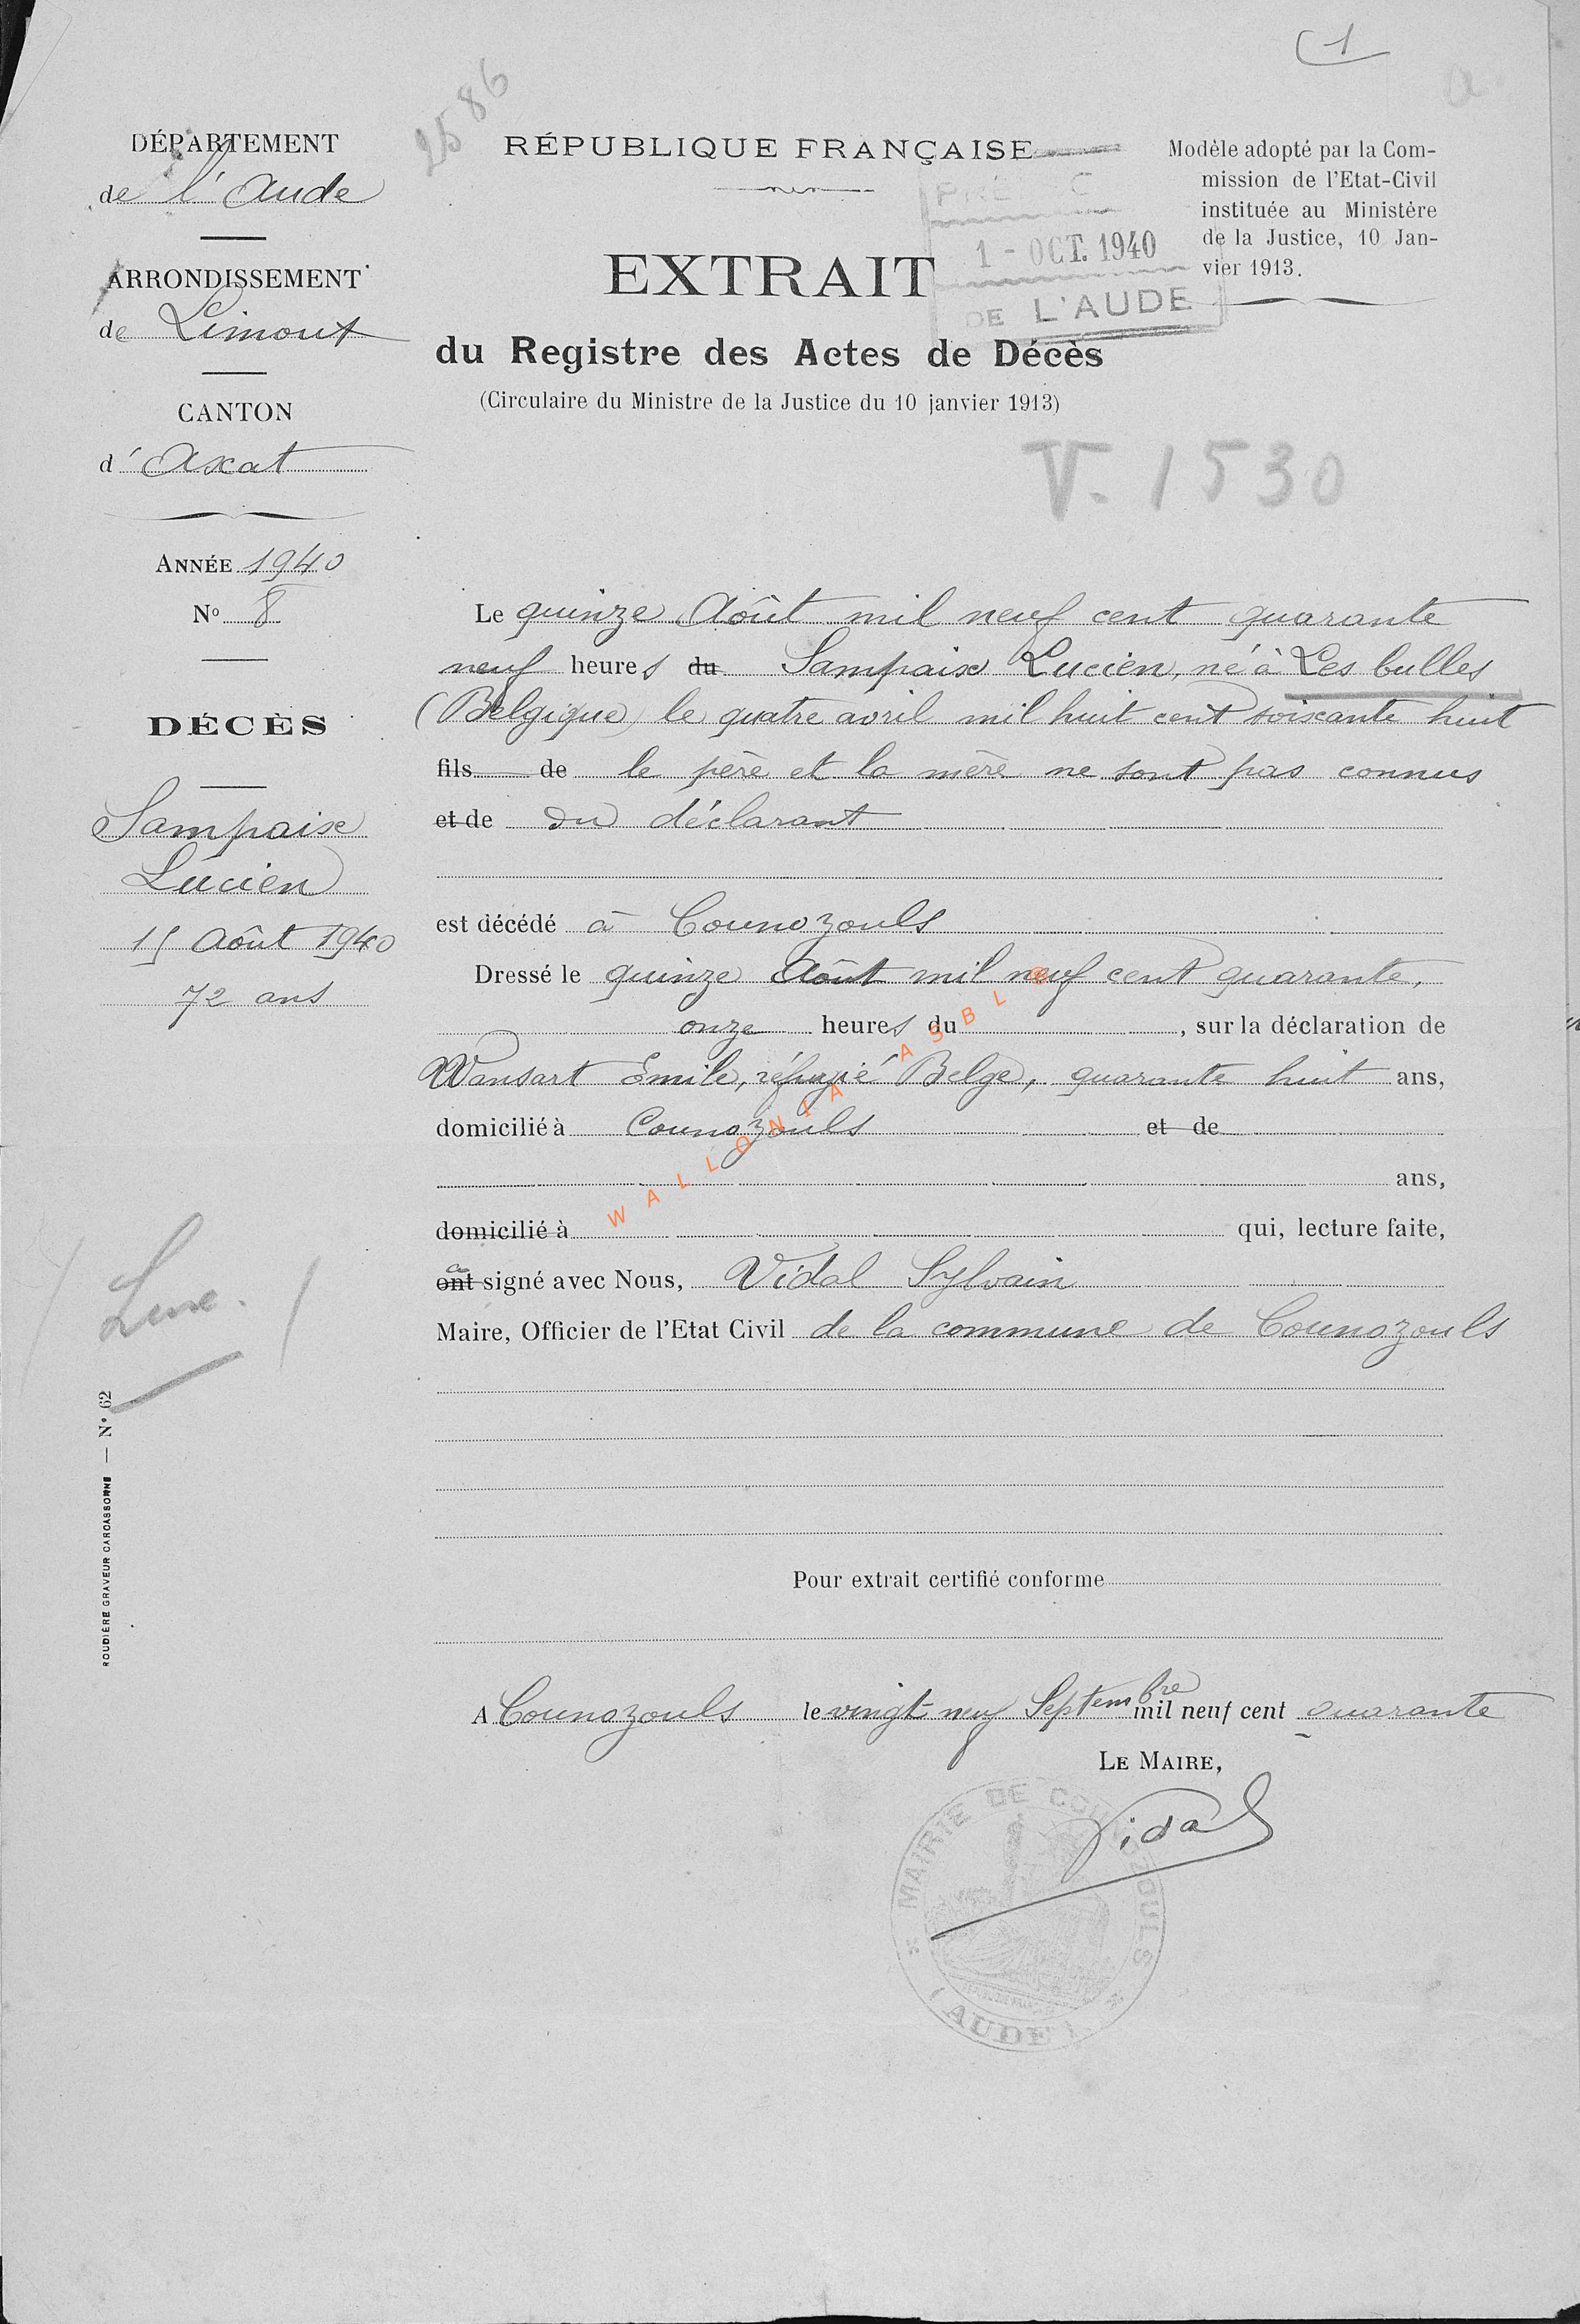 1
2586
DÉPARTEMENT
de l'Aude
ARRONDISSEMENT
de Limoux
CANTON
d'Axat
ANNÉE 1940
N° 8
DÉCÈS
Sampaix
Lucien
15 Août 1940
72 ans
Luxe.
ROUDIÈRE GRAVEUR CARCASSONNE — N° 62
RÉPUBLIQUE FRANÇAISE
EXTRAIT
du Registre des Actes de Décès
(Circulaire du Ministre de la Justice du 10 janvier 1913)
Modèle adopté par la Com-
mission de l'Etat-Civil
instituée au Ministère
de la Justice, 10 Jan-
vier 1913.
1 - OCT. 1940
DE L'AUDE
V. 1530
Le quinze Août mil neuf cent quarante
neuf heures du Sampaix Lucien, né à Les bulles
(Belgique) le quatre avril mil huit cent soixante huit
fils de le père et la mère ne sont pas connus
et de du déclarant
est décédé à Counozouls
Dressé le quinze Août mil neuf cent quarante,
onze heures du , sur la déclaration de
Wansart Emile, réfugié Belge, quarante huit ans,
domicilié à Counozouls et de
ans,
domicilié à qui, lecture faite,
ont a signé avec Nous, Vidal Sylvain
Maire, Officier de l'Etat Civil de la commune de Counozouls
Pour extrait certifié conforme
A Counozouls le vingt neuf Septembre mil neuf cent quarante
LE MAIRE,
Vidal
MAIRIE DE COUNOZOULS
(AUDE)
WALLONIA ASBL ©